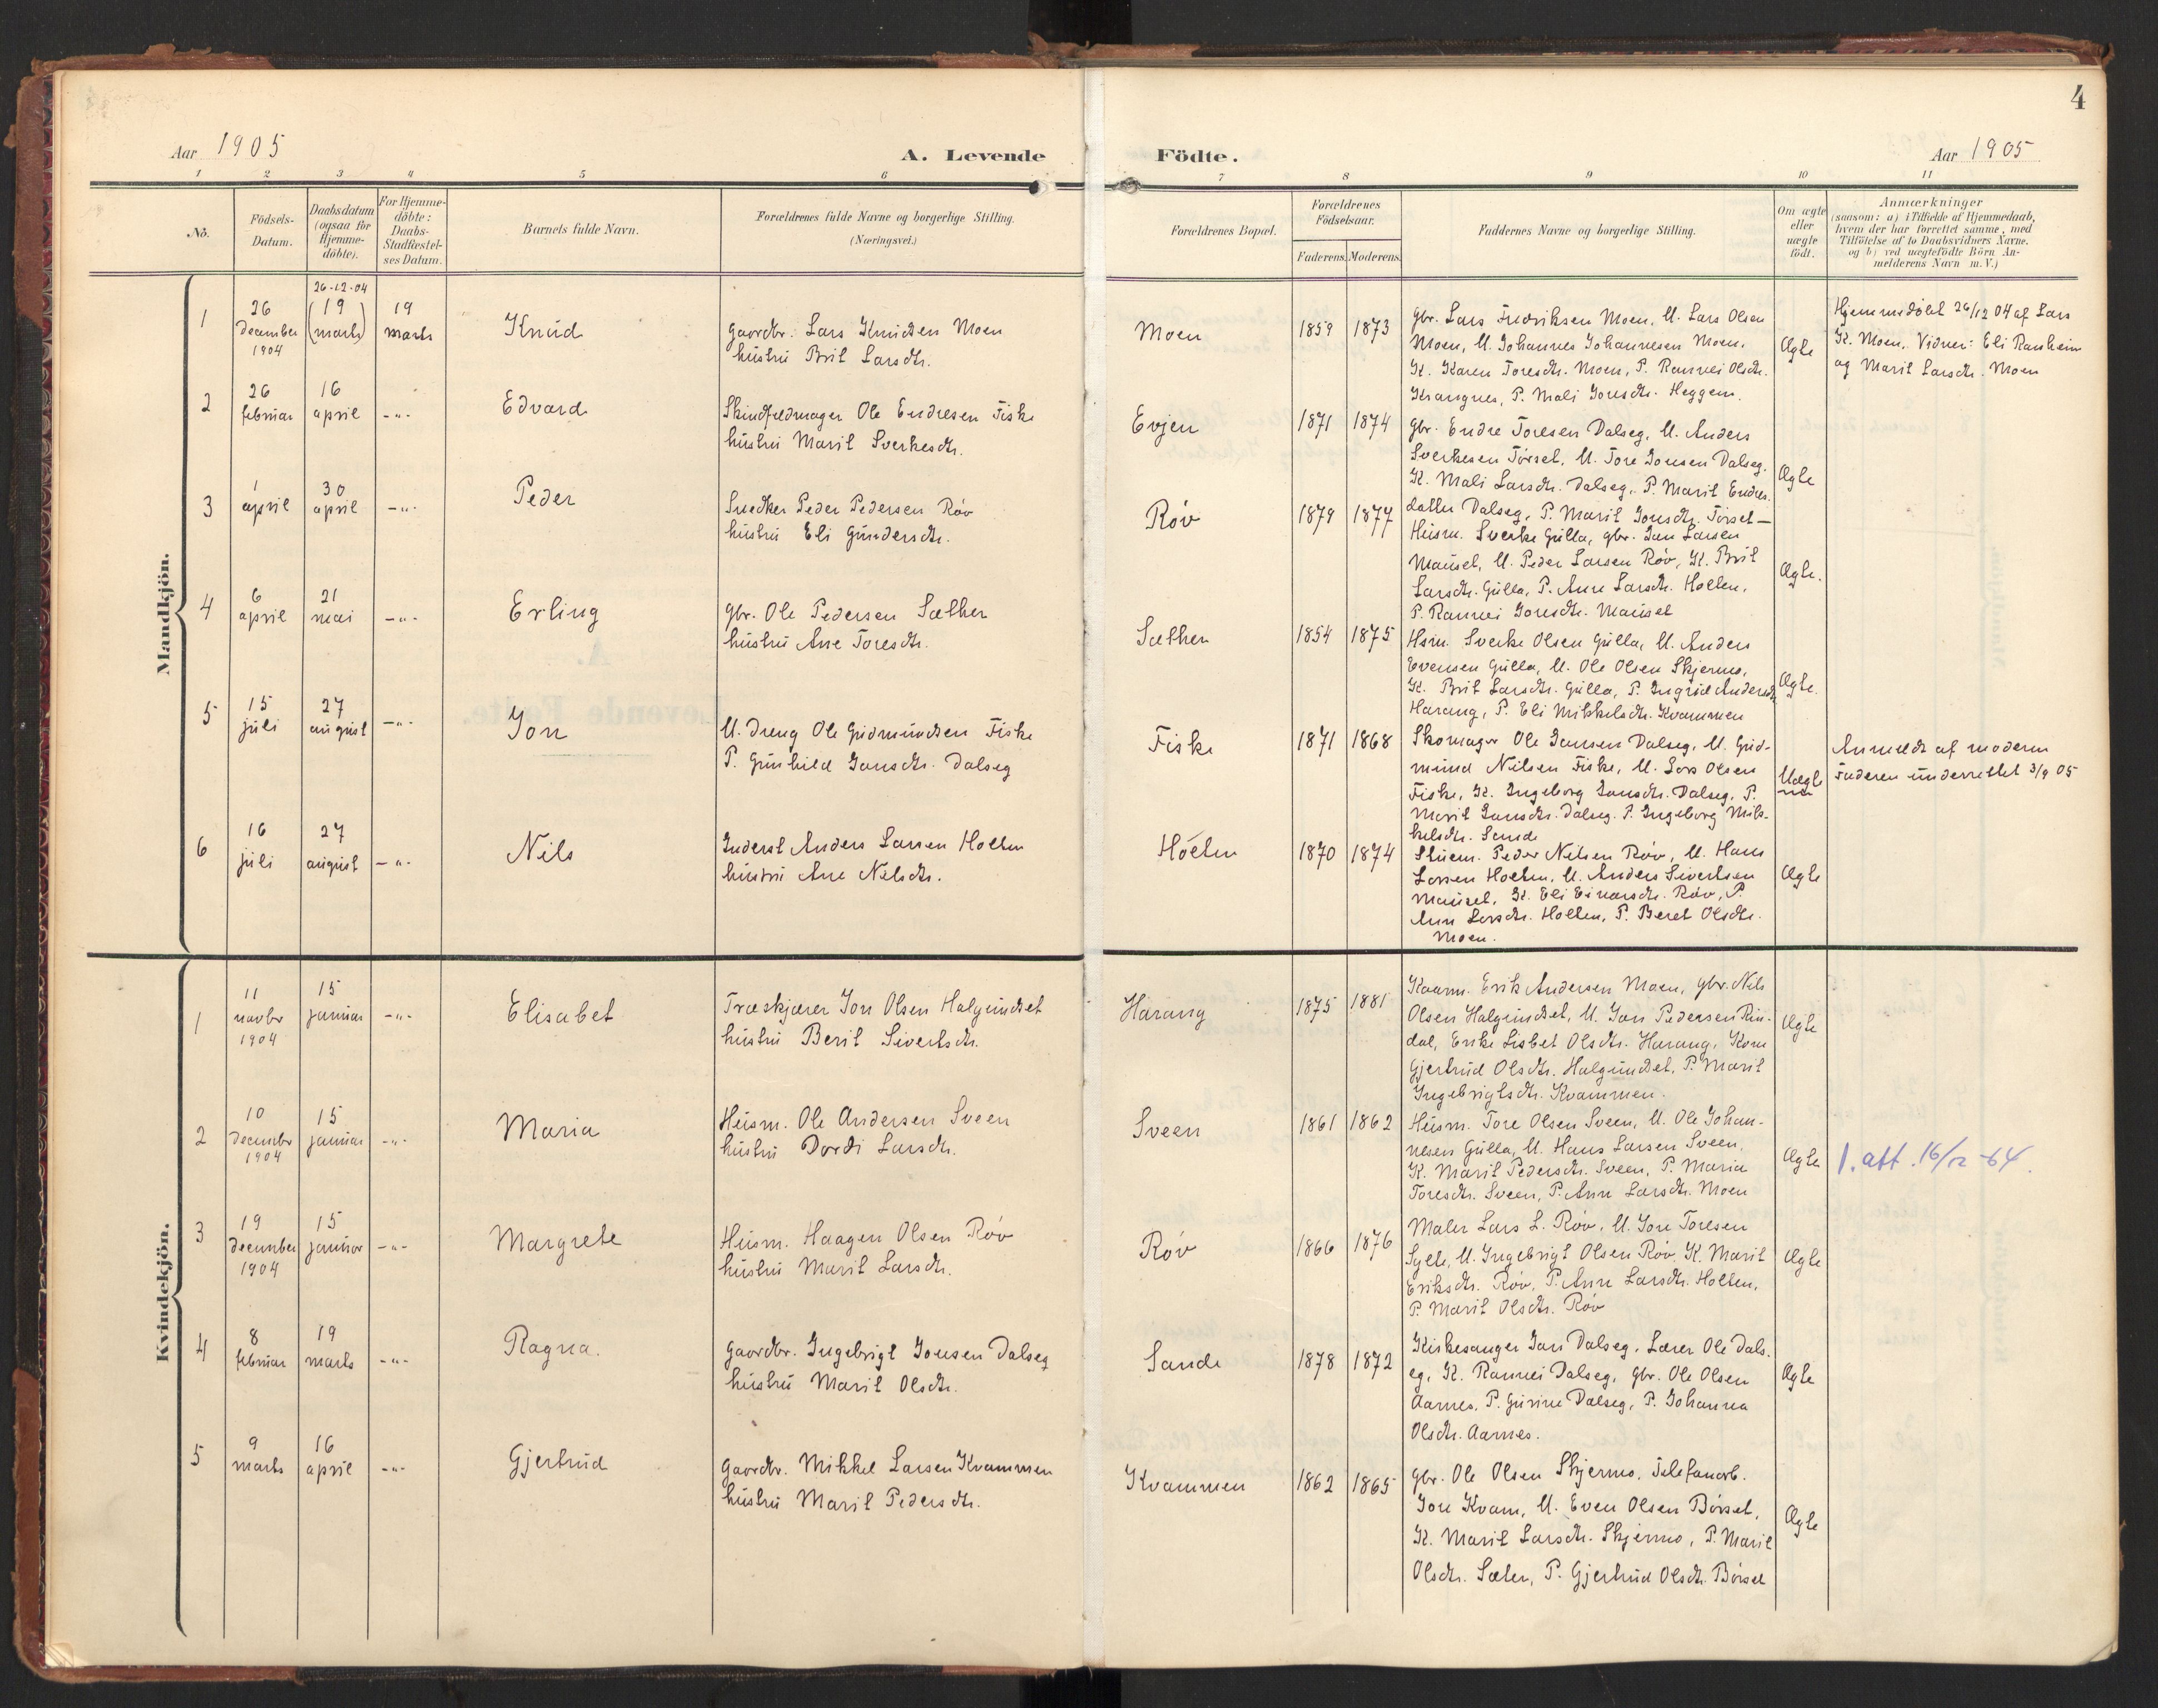 4
Aar 1905
A. Levende
Födte.
Aar 1905
1 2 3 4 5 6 7 8 9 10 11
No.
Födsels-
Datum.
Daabsdatum
(ogsaa for
Hjemme-
döbte).
For Hjemme-
döbte:
Daabs-
Stadfæstel-
ses Datum.
Barnets fulde Navn.
Forældrenes fulde Navne og borgerlige Stilling.
(Næringsvei.)
Forældrenes Bopæl.
Forældrenes
Födselsaar.
Faderens. Moderens.
Faddernes Navne og borgerlige Stilling.
Om ægte
eller
uægte
födt.
Anmærkninger
(saasom: a) i Tilfælde af Hjemmedaab,
hvem der har forrettet samme, med
Tilföielse af to Daabsvidners Navne.
og b) ved uægtefödte Börn An-
melderens Navn m. V.)
Mandkjön.
1
26
December
1904
26-12-04
(19
marts)
19
marts
Knud
Gaardbr. Lars Knudsen Moen
hustru Brit Larsdtr.
Moen
1859 1873
Gbr. Lars Fredriksen Moen, U. Lars Olsen
Moen, U. Johannes Johannesen Moen,
K. Karen Toresdtr. Moen, P. Rannei Olsdtr.
Krangnes, P. Mali Jonsdtr. Heggem.
Ægte
Hjemmedøbt 26/12 04 af Lars
K. Moen. Vidner: Eli Ranheim
og Marit Larsdtr. Moen
2
26
februar
16
april
-"-
Edvard
Skindfeldmager Ole Endresen Fiske
hustru Marit Sverkesdtr.
Evjen
1871 1874
Gbr. Endre Toresen Dalseg, U. Anders
Sverkesen Tørset, U. Tore Jonsen Dalseg,
K. Mali Larsdtr. Dalseg, P. Marit Endres-
datter Dalseg, P. Marit Jonsdtr. Tørset —
Ægte
3
1
april
30
april
-"-
Peder
Snedker Peder Pedersen Røv
hustru Eli Gundersdtr.
Røv
1879 1877
Husm. Sverke Gulla, gbr. Jon Larsen
Mausel, U. Peder Larsen Røv, K. Brit
Larsdtr. Gulla, P. Ane Larsdtr. Holten,
P. Rannei Toresdtr. Mausel
Ægte.
4
6
april
21
mai
-"-
Erling
Gbr. Ole Pedersen Sæther
hustru Ane Toresdtr.
Sæther
1854 1875
Hsm. Sverke Olsen Gulla, U. Anders
Evensen Gulla, U. Ole Olsen Skjermo,
K. Brit Larsdtr. Gulla, P. Ingrid Andersdtr.
Harang, P. Eli Mikkelsdtr. Kvammen
Ægte.
5
15
juli
27
august
-"-
Jon
U. dreng Ole Gudmundsen Fiske
P. Gunhild Jonsdtr. Dalseg
Fiske
1871 1868
Skomager Ole Jonsen Dalseg, U. Gud-
mund Nilsen Fiske, U. Lars Olsen
Fiske, K. Ingeborg Jonsdtr. Dalseg, P.
Marit Jonsdtr. Dalseg. P. Ingeborg Mik-
kelsdtr. Sande
Uægte
Anmeldt af moderen
Faderen underrettet 3/9 05
6
16
juli
27
august
-"-
Nils
Inderst Anders Larsen Holten
hustru Ane Nilsdtr.
Holten
1870 1874
Stuem. Peder Nilsen Røv, U. Hans
Larsen Holten, U. Anders Sivertsen
Mausel, K. Eli Einarsdtr. Røv, P.
Ann Larsdtr. Holten, P. Beret Olsdtr.
Moen.
Ægte
Kvindekjön.
1
11
novbr
1904
15
januar
-"-
Elisabet
Træskjærer Jon Olsen Halgundset
hustru Berit Sivertsdtr.
Harang
1875 1881
Kaarm. Erik Andersen Moen, gbr. Nils
Olsen Halgundset, U. Jon Pedersen Rin-
dal, Enke Lisbet Olsdtr. Harang, Kone
Gjertrud Olsdtr. Halgundset, P. Marit
Ingebrigtsdtr. Kvammen.
Ægte
2
10
Decembr
1904
15
januar
-"-
Maria
Husm. Ole Andersen Sveen
hustru Dordi Larsdtr.
Sveen
1861 1862
Husm. Tore Olsen Sveen, U. Ole Johan-
nesen Gulla, U. Hans Larsen Sveen,
K. Marit Pedersdtr. Sveen, P. Maria
Toresdtr. Sveen, P. Ann Larsdtr. Moen
Ægte
1. att. 16/12 -64.
3
19
December
1904
15
januar
-"-
Margrete
Husm. Haagen Olsen Røv
hustru Marit Larsdtr.
Røv
1866 1876
Maler Lars L. Røv, U. Jon Toresen
Sylte, U. Ingebrigt Olsen Røv, K. Marit
Eriksdtr. Røv, P. Ann Larsdtr. Holten,
P. Marit Olsdtr. Røv
Ægte
4
8
februar
19
marts
-"-
Ragna.
Gaardbr. Ingebrigt Jonsen Dalseg
hustru Marit Olsdtr.
Sande
1878 1872
Kirkesanger Jon Dalseg, Lærer Ole Dals-
eg, K. Rannei Dalseg, gbr. Ole Olsen
Aarnes, P. Gurine Dalseg, P. Johanna
Olsdtr. Aarnes.
Ægte
5
9
marts
16
april
-"-
Gjertrud
Gaardbr. Mikkel Larsen Kvammen
hustru Marit Pedersdtr.
Kvammen
1862 1865
Gbr. Ole Olsen Skjermo, Telefonarb.
Tore Kvam, U. Even Olsen Børset,
K. Marit Larsdtr. Skjermo, P. Marit
Olsdtr. Sæter, P. Gjertrud Olsdtr. Børset
Ægte